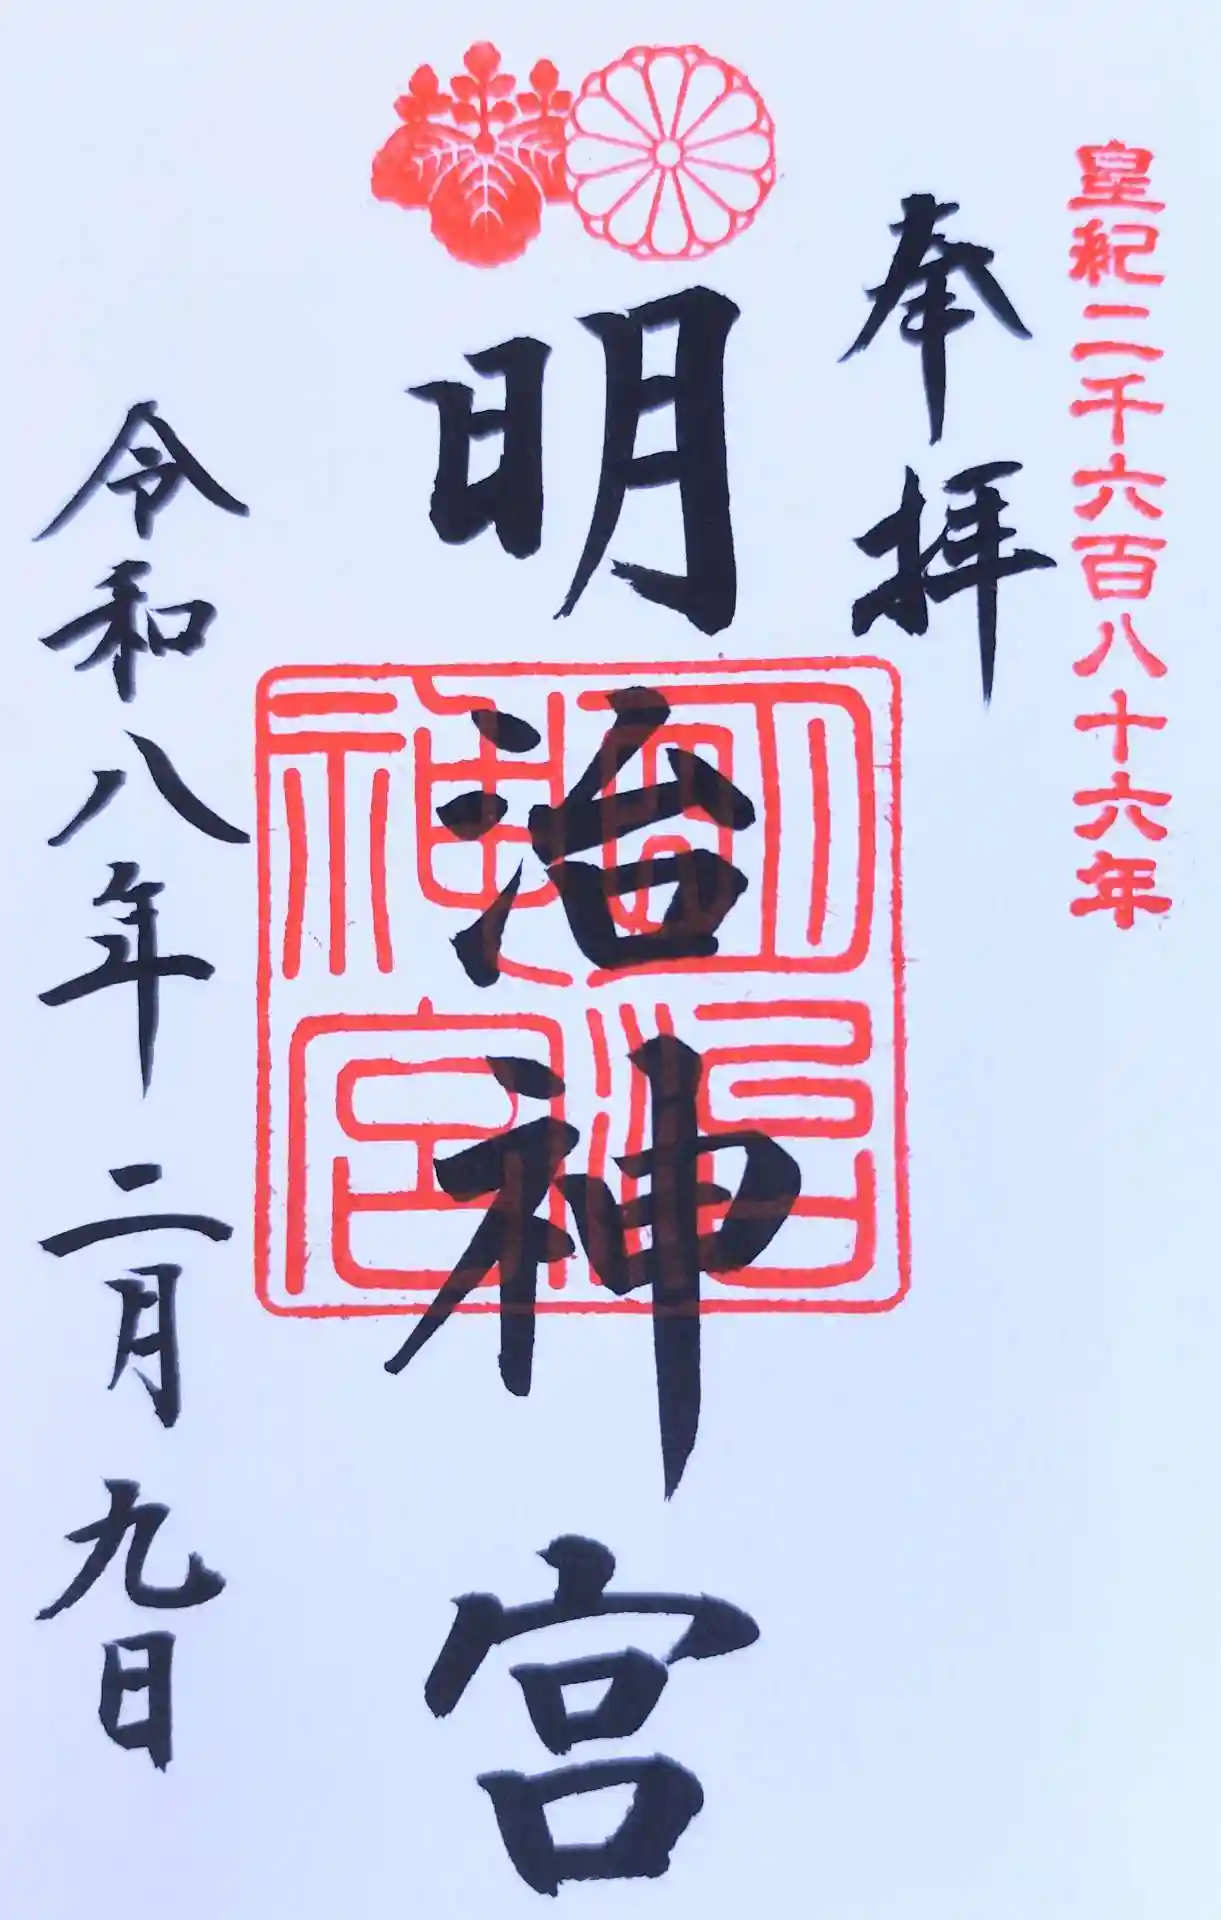 皇紀二千六百八十六年
奉拝
明治神宮
明治神宮
令和八年二月九日